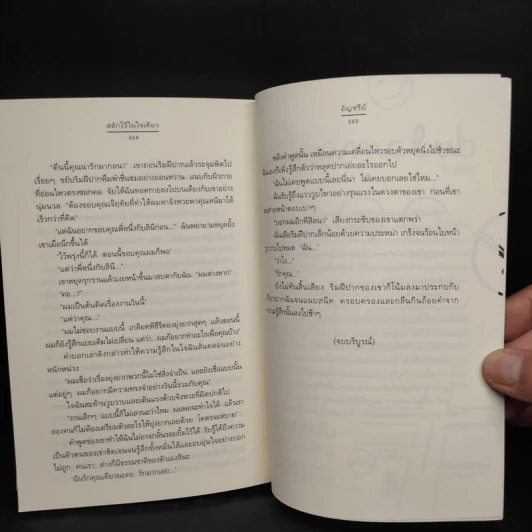 สลักไว้ในใจเดียว
364
"คืนนี้คุณน่ารักมากลนา" เขาถอนริมฝีปากแล้วระจุมพิตไป
เรื่อยๆ ขยับริมฝีปากเพิ่มพร่ำชื่นชมอย่างอ่อนหวาน แนบกับผิวกาย
ที่อ่อนไหวตรงซอกคอ จับให้ฉันทอดกายลงไปบนเตียงกับเขาอย่าง
นุ่มนวล "ต้องขอบคุณเจ๊ฤทัยที่ทำให้ผมหาจังหวะพาคุณหนีมาได้
เร็วกว่าที่คิด"
"แต่ฉันอยากขอบคุณพี่หนึ่งกับลินีก่อน..." ฉันพยายามหยุดยั้ง
เขาเมื่อนึกขึ้นได้
"ไว้พรุ่งนี้ก็ได้ ตอนนี้ขอบคุณผมก็พอ"
"แต่ว่าพี่หนึ่งกับลินี..."
เขาหยุดรุกรานแล้วเงยหน้าขึ้นมาสบตากับฉัน "ผมต่างหาก"
"คะ...?"
"ผมเป็นต้นคิดเรื่องงานวันนี้"
"แต่ว่าคุณ..."
"ผมไม่ชอบงานแบบนี้ เกลียดพิธีรีตองยุ่งยากสุดๆ แล้วตอนนี้
ผมก็ยังรู้สึกแบบเดิมไม่เปลี่ยน แต่ว่า...ผมก็อยากทำอะไรเพื่อคุณบ้าง"
คำบอกเล่าดังกล่าวทำให้ความรู้สึกในใจฉันสั่นคลอนอย่าง
หนักหน่วง
"ผมเชื่อว่าเรื่องยุ่งยากพวกนี้ไม่ใช่สิ่งจำเป็น และยังเชื่อแบบนั้น
แต่อยู่ๆ ผมก็อยากมีความทรงจำอย่างวันนี้ร่วมกับคุณ"
ใจฉันสะท้านวูบวาบและเต้นแรงด้วยจังหวะที่ผิดปกติไป
"งานเล็กๆ แบบนี้ก็ไม่เลวนะว่าไหม ผมพอจะทำใจได้ แล้วเรา
สองคนก็ไม่ต้องเตรียมตัวอะไรให้ยุ่งยากเลยด้วย โคตรจะสบาย"
คำพูดของเขาทำให้ฉันไม่อาจกลั้นรอยยิ้มไว้ได้ รับรู้ได้ถึงความ
เป็นตัวตนของเขาชัดเจนจนรู้สึกทั้งหมั่นไส้และอบอุ่นใจอย่างบอก
ไม่ถูก คนเรา...ต่างก็มีธรรมชาติของตัวเองสินะ
"ฉันรักคุณเดียวนะคะ รักมากเลย..."
อัญชรีย์
365
หลังคำพูดนั้น เหมือนความเคลื่อนไหวรอบตัวหยุดนิ่งไปชั่วขณะ
ฉันเองก็เพิ่งรู้สึกตัวว่าหลุดปากเอ่ยอะไรออกไป
"ฉันไม่เคยพูดแบบนี้เลยนี่นา ไม่เคยบอกเลยใช่ไหม..."
ฉันรับรู้ถึงแววูบไหวอย่างรุนแรงในดวงตาของเขา ก่อนที่เขา
จะส่ายหน้าตอบเบาๆ
"บอกผมอีกทีสิลนา" เสียงกระซิบของเขาแตกพร่า
ฉันเผยริมฝีปากเล็กน้อยด้วยความประหม่า เกร็งจนร้อนใบหน้า
วูบวาบไปหมด "ฉัน..."
"ว่าไง..."
"รักคุณ..."
ยังไม่ทันสิ้นเสียง ริมฝีปากของเขาก็โน้มลงมาประกบกับ
เรียวปากฉันจนแนบสนิท ครอบครองและกลืนกินถ้อยคำจาก
ความรู้สึกนั้นลงไปช้าๆ
(จบบริบูรณ์)